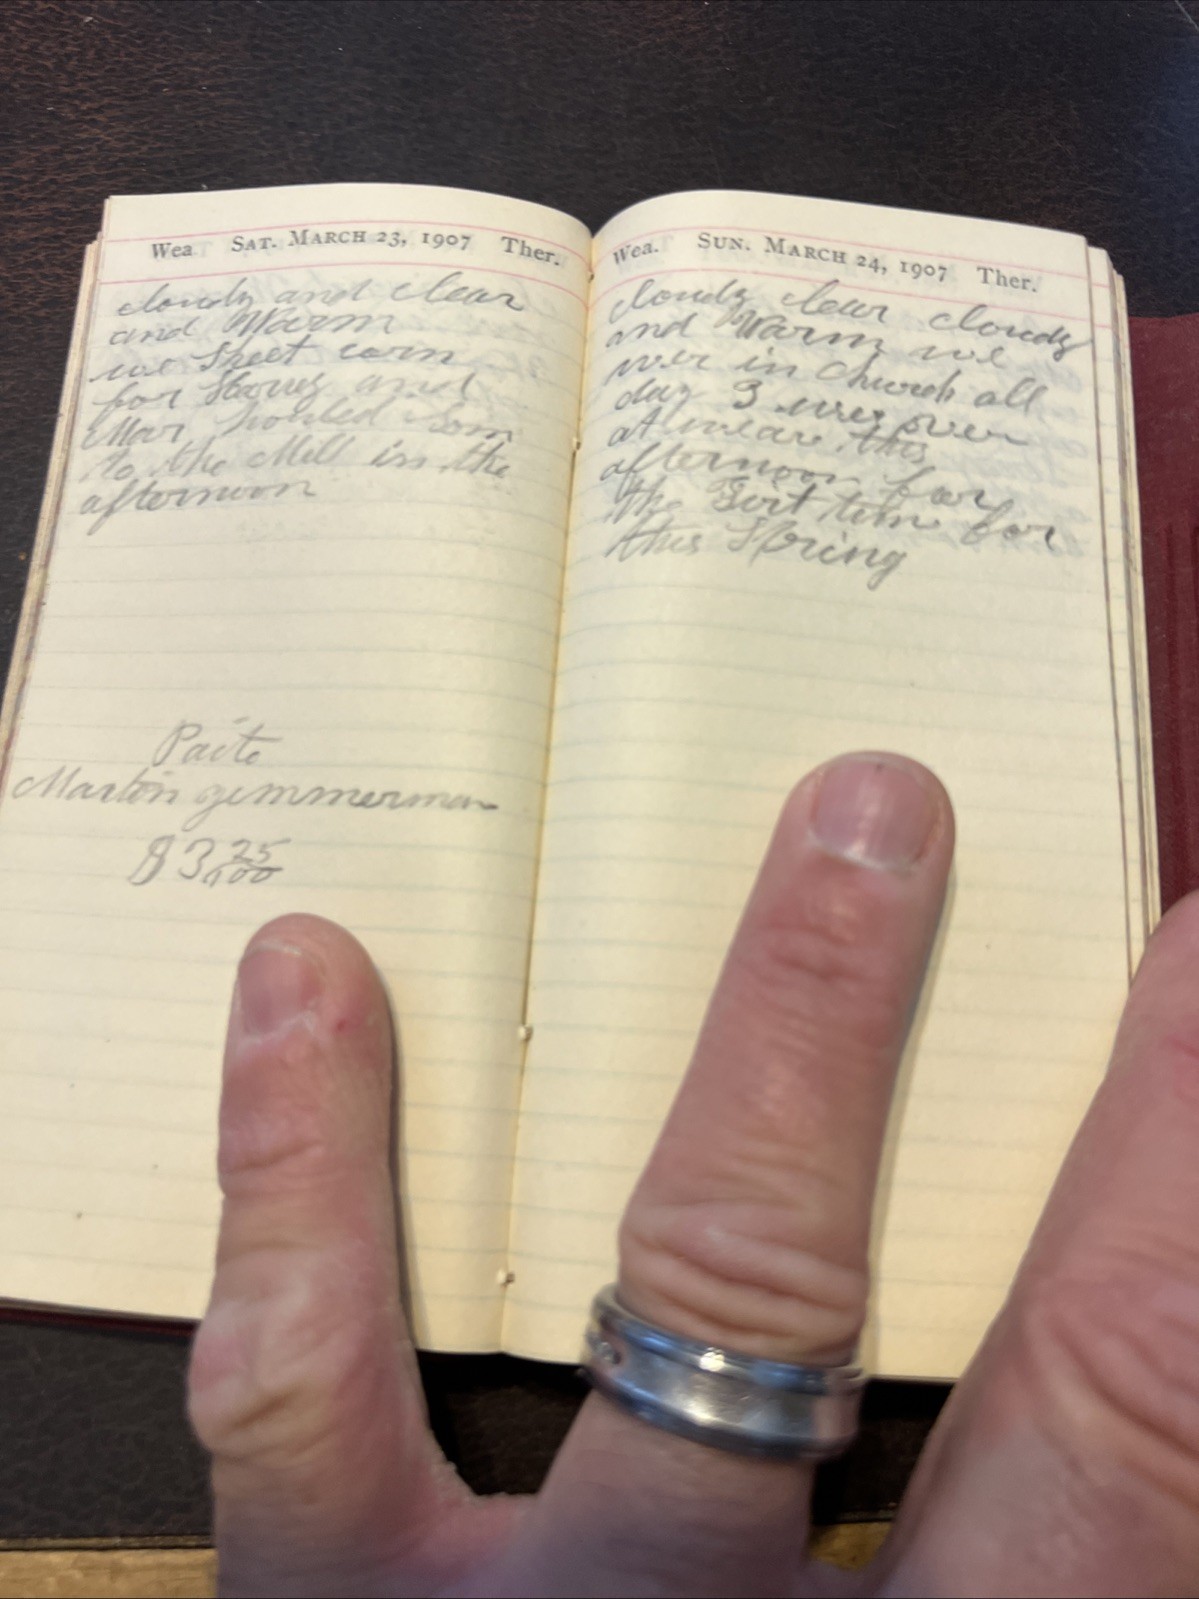 Wea. SAT. MARCH 23, 1907 Ther.
cloudy and clear
and Warm
we Sheet corn
for and
Mar houled Som
to the Mill in the
afternoon
Paite
Martin zimmerman
$3 25/100
Wea. SUN. MARCH 24, 1907 Ther.
Cloudy clear cloudy
and Warm we
wer in Church all
day 3 over
at this
afternoon for
the First tim for
this Spring